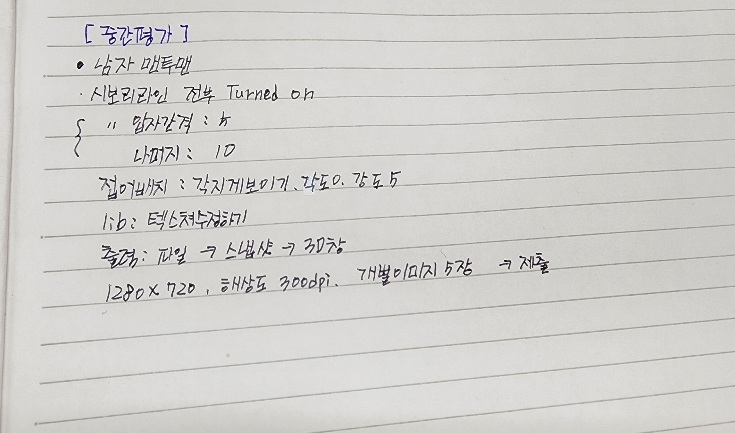 [중간평가]
• 남자 맨투맨
· 시보리라인 전부 Turned on
{ 〃 입자간격 : 5
나머지 : 10
접어배치 : 각지게보이기, 각도0, 강도5
lib : 텍스쳐수정하기
출력 : 파일 → 스냅샷 → 3D창
1280 x 720, 해상도 300dpi. 개별이미지 5장 → 제출